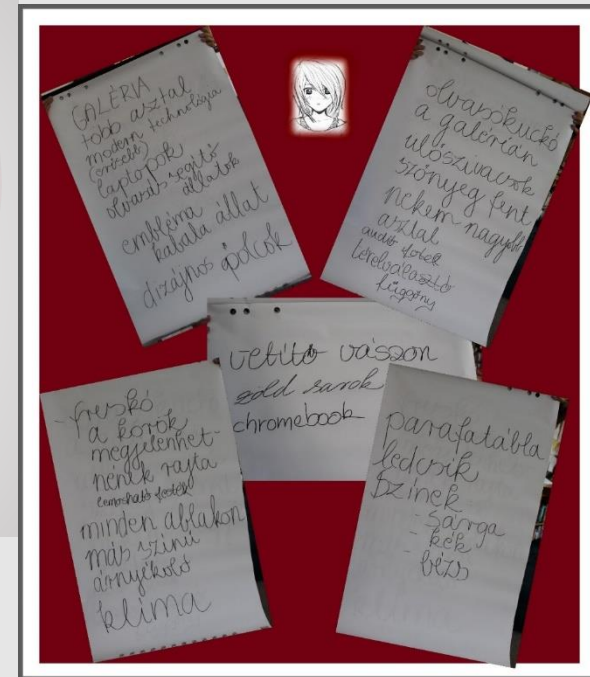 GALÉRIA
több asztal
modern technológia
(erősebb)
laptopok
olvasás segítő
állatok
embléma
kabala állat
dizájnos polcok
olvasókuckó
a galérián
ülőszivacsok
szőnyeg fent
nekem nagyobb
asztal
audió fotel
térelválasztó
függöny
vetítő vászon
zöld sarok
chromebook
- freskó
a korok
megjelenhet-
nének rajta
lemosható festék
minden ablakon
más színű
árnyékoló
klíma
parafatábla
ledcsík
Színek
- sárga
- kék
- bézs